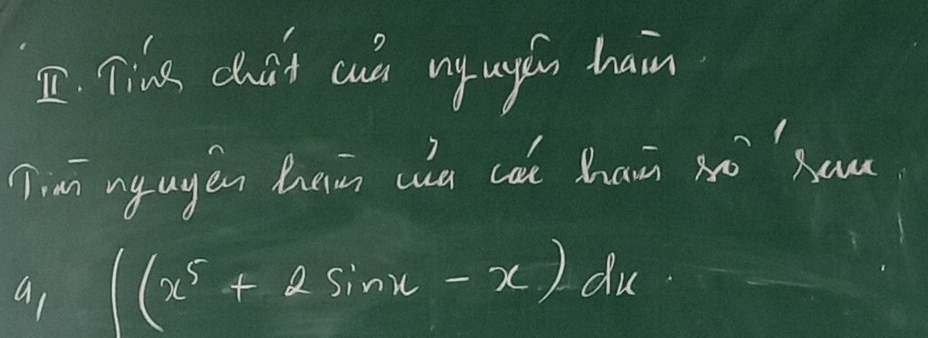 II. Tính chất của nguyên hàm.
Tìm nguyên hàm của các hàm số sau
a, ∫(x⁵ + 2 sinx - x) dx.